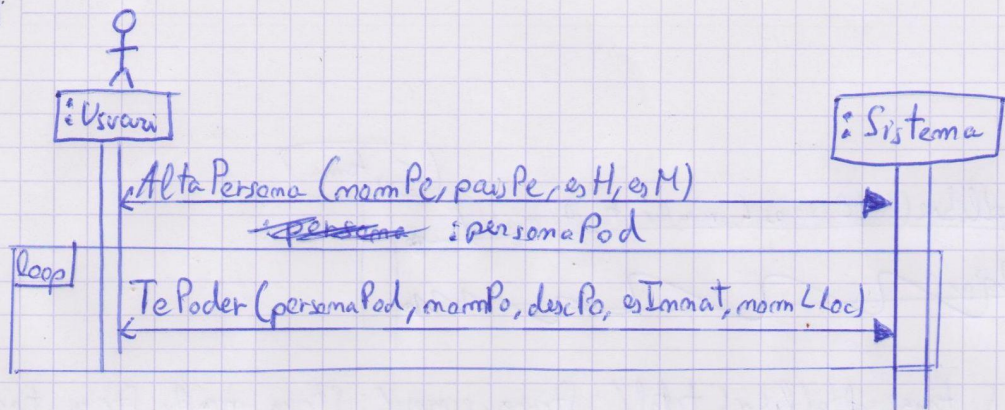 :Usuari
:Sistema
AltaPersona (nomPe, paisPe, esH, esM)
persona :personaPod
loop
TePoder (personaPod, nomPo, descPo, esInnat, nomLloc)